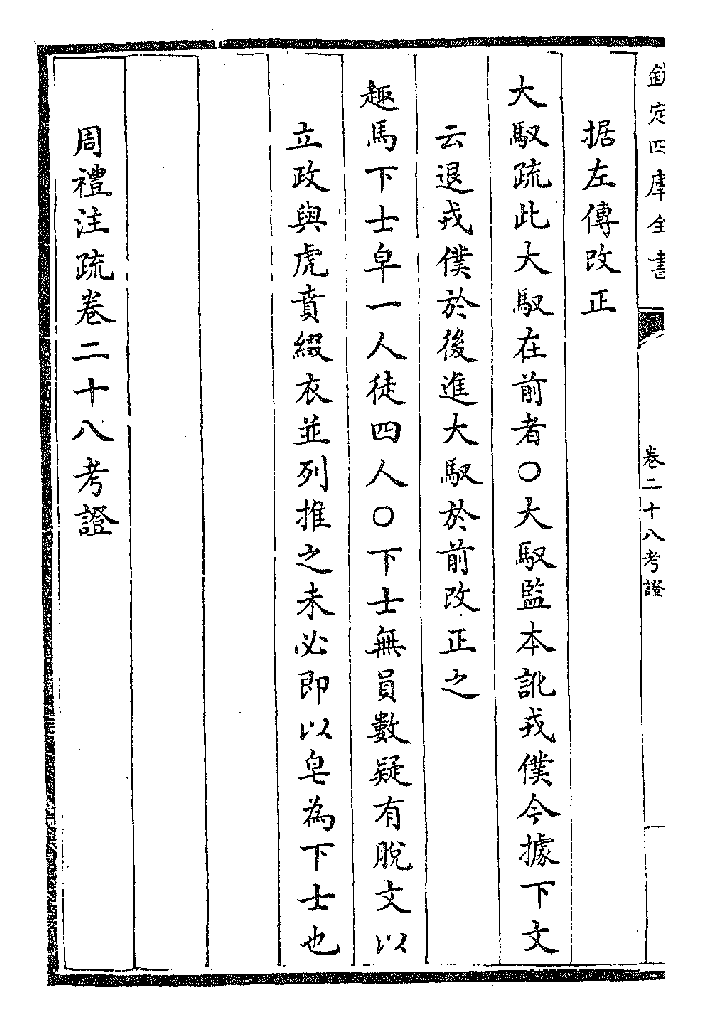 欽定四庫全書
卷二十八考證
据左傳改正
大馭疏此大馭在前者○大馭監本訛戎僕今據下文
云退戎僕於後進大馭於前改正之
趣馬下士皁一人徒四人○下士無員數疑有脫文以
立政與虎賁綴衣並列推之未必即以皂為下士也
周禮注疏卷二十八考證